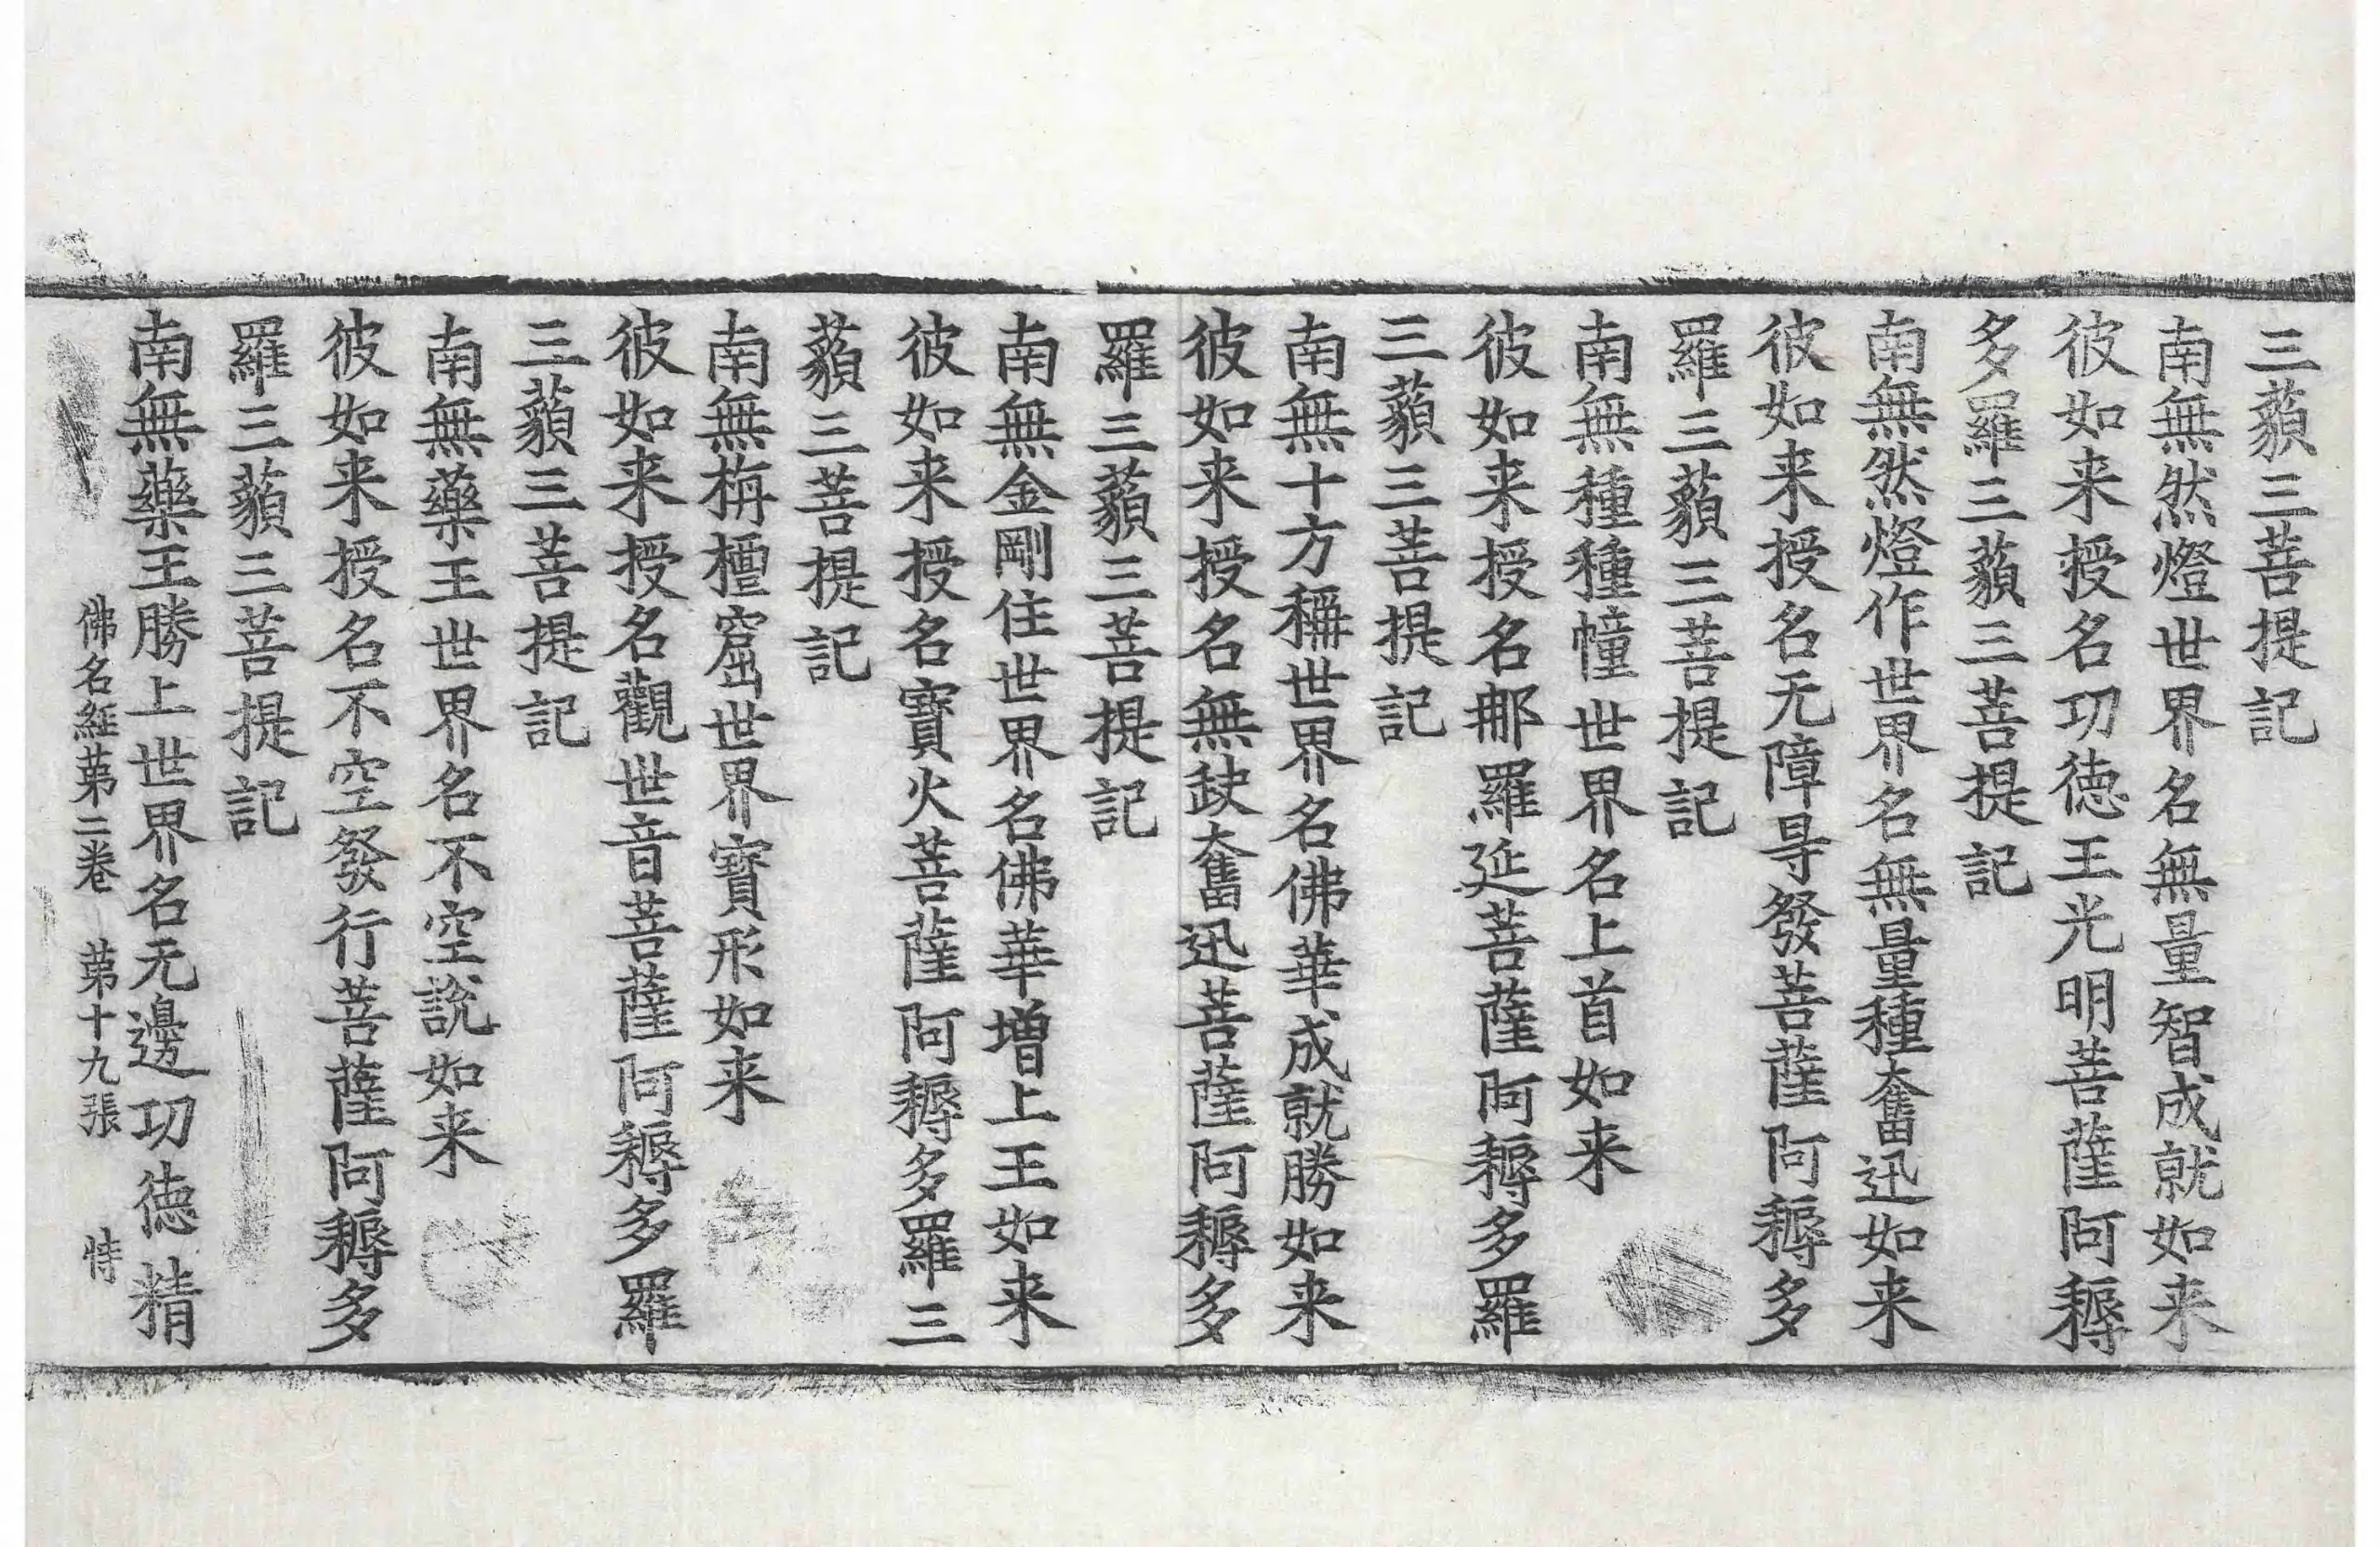 三藐三菩提記
南無然燈世界名無量智成就如来
彼如来授名功徳王光明菩薩阿耨
多羅三藐三菩提記
南無然燈作世界名無量種奮迅如来
彼如来授名无障㝵發菩薩阿耨多
羅三藐三菩提記
南無種種幢世界名上首如来
彼如来授名那羅延菩薩阿耨多羅
三藐三菩提記
南無十方稱世界名佛華成就勝如来
彼如来授名無缺奮迅菩薩阿耨多
羅三藐三菩提記
南無金剛住世界名佛華增上王如来
彼如来授名寶火菩薩阿耨多羅三
藐三菩提記
南無栴檀窟世界寶形如来
彼如来授名觀世音菩薩阿耨多羅
三藐三菩提記
南無藥王世界名不空說如来
彼如来授名不空發行菩薩阿耨多
羅三藐三菩提記
南無藥王勝上世界名无邊功徳精
佛名經苐二卷 苐十九張 恃